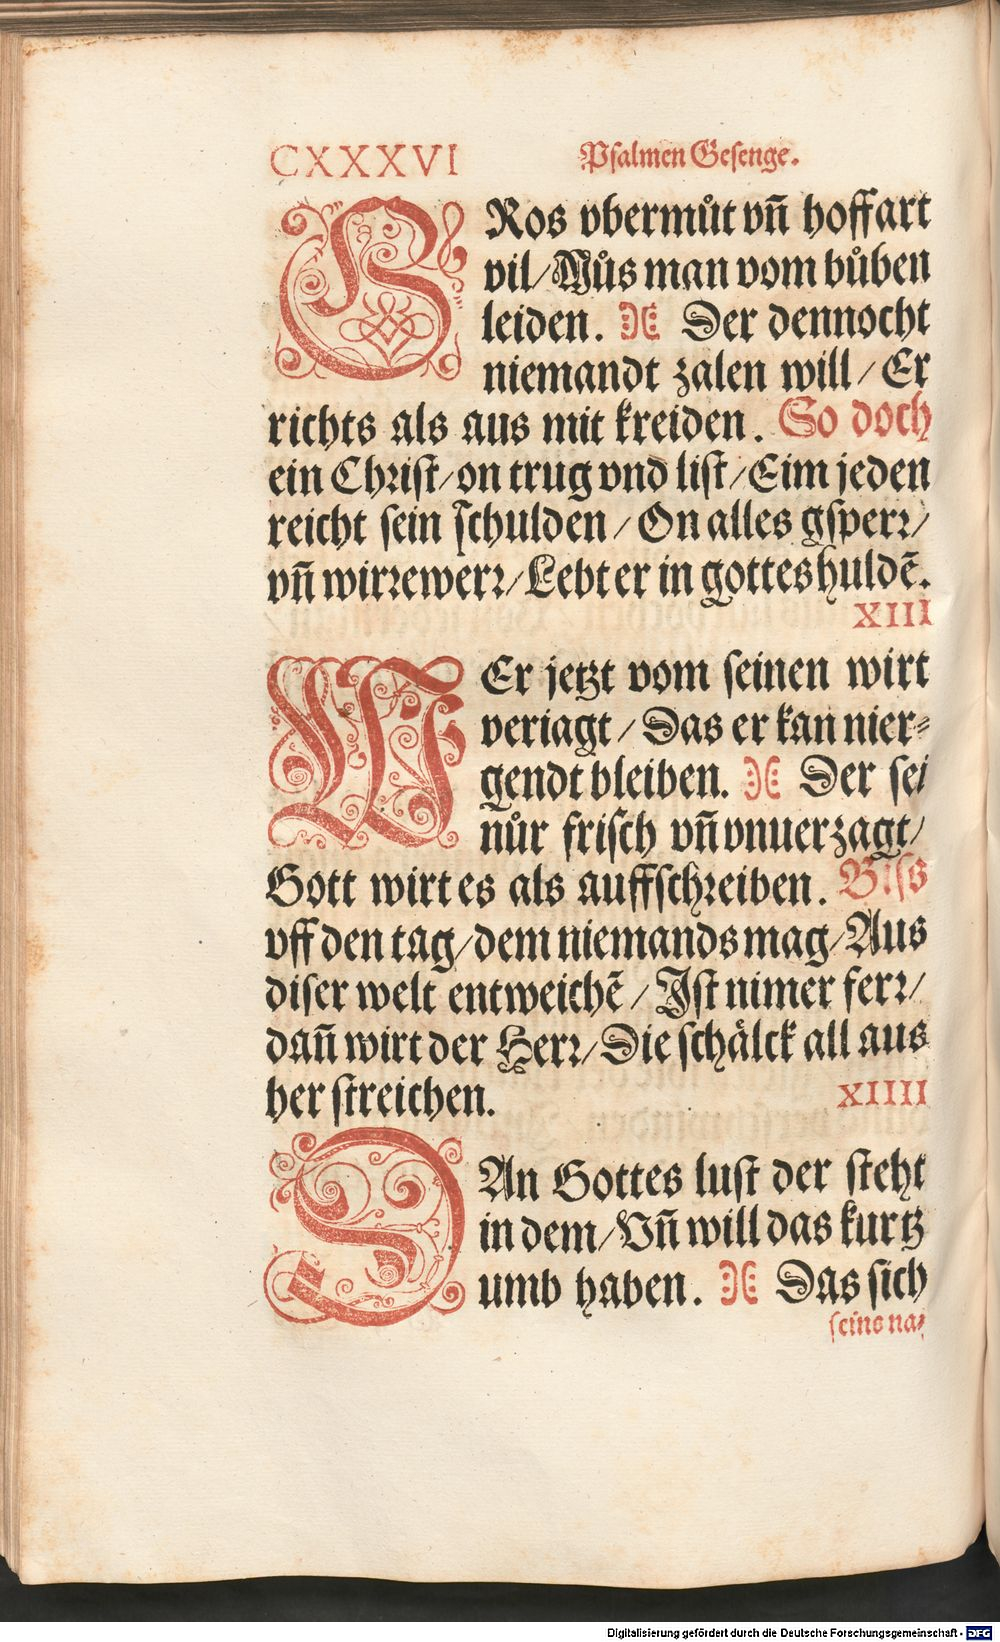 CXXXVI Psalmen Gesenge.
GRos vbermůt vn̄ hoffart
vil/Můs man vom bůben
leiden. Der dennocht
niemandt zalen will/Er
richts als aus mit kreiden. So doch
ein Christ/on trug vnd list/Eim jeden
reicht sein schulden/On alles gsperr/
vn̄ wirrewerr/Lebt er in gottes huldē.
XIII
WEr jetzt vom seinen wirt
veriagt/Das er kan nier⸗
gendt bleiben. Der sei
nůr frisch vn̄ vnuerzagt/
Gott wirt es als auffschreiben. Biss
vff den tag/dem niemands mag/Aus
diser welt entweichē/Ist nimer ferr/
dan̄ wirt der Herr/Die schälck all aus
her streichen. XIIII
DAn Gottes lust der steht
in dem/Vn̄ will das kurtz
umb haben. Das sich
seins na⸗
Digitalisierung gefördert durch die Deutsche Forschungsgemeinschaft - DFG